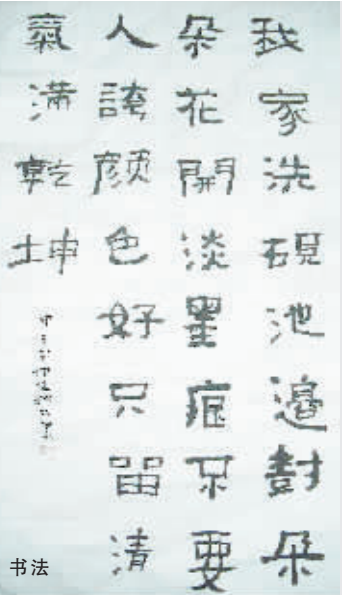 我家洗硯池邊尌朵
朵花開淡墨痕不要
人誇顏色好只留清
氣滿乾坤
书法